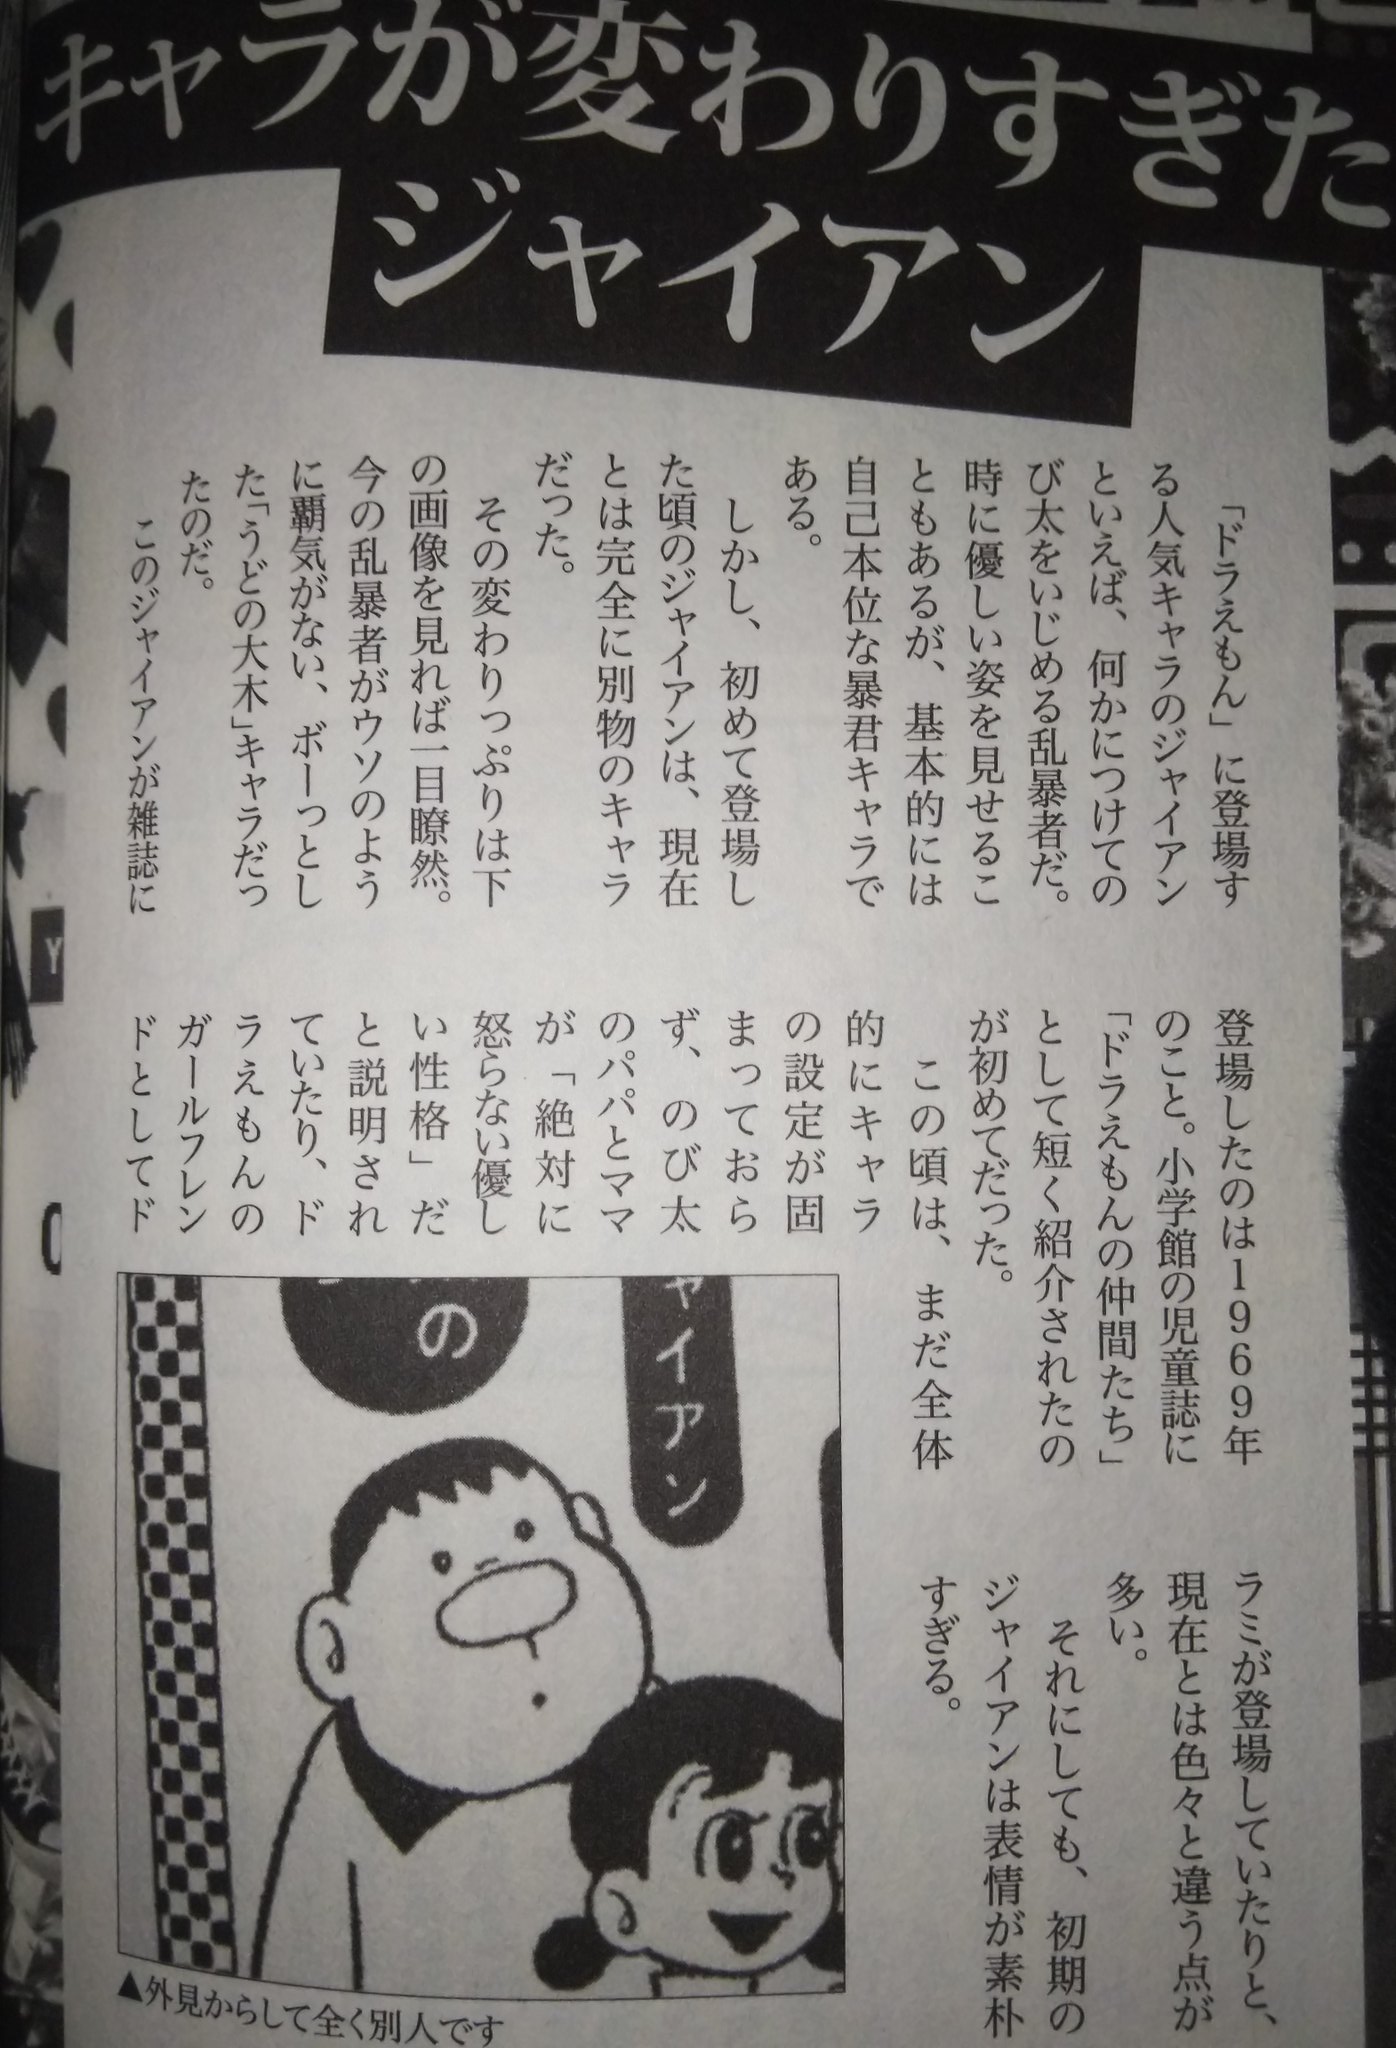 キャラが変わりすぎた
ジャイアン
「ドラえもん」に登場す
る人気キャラのジャイアン
といえば、何かにつけての
び太をいじめる乱暴者だ。
時に優しい姿を見せるこ
ともあるが、基本的には
自己本位な暴君キャラで
ある。
しかし、初めて登場し
た頃のジャイアンは、現在
とは完全に別物のキャラ
だった。
その変わりっぷりは下
の画像を見れば一目瞭然。
今の乱暴者がウソのよう
に覇気がない、ボーっとし
た「うどの大木」キャラだっ
たのだ。
このジャイアンが雑誌に
登場したのは1969年
のこと。小学館の児童誌に
「ドラえもんの仲間たち」
として短く紹介されたの
が初めてだった。
この頃は、まだ全体
的にキャラ
の設定が固
まっておら
ず、のび太
のパパとママ
が「絶対に
怒らない優し
い性格」だ
と説明され
ていたり、ド
ラえもんの
ガールフレン
ドとしてド
ラミが登場していたりと、
現在とは色々と違う点が
多い。
それにしても、初期の
ジャイアンは表情が素朴
すぎる。
ャイアン
の
▲外見からして全く別人です
Y